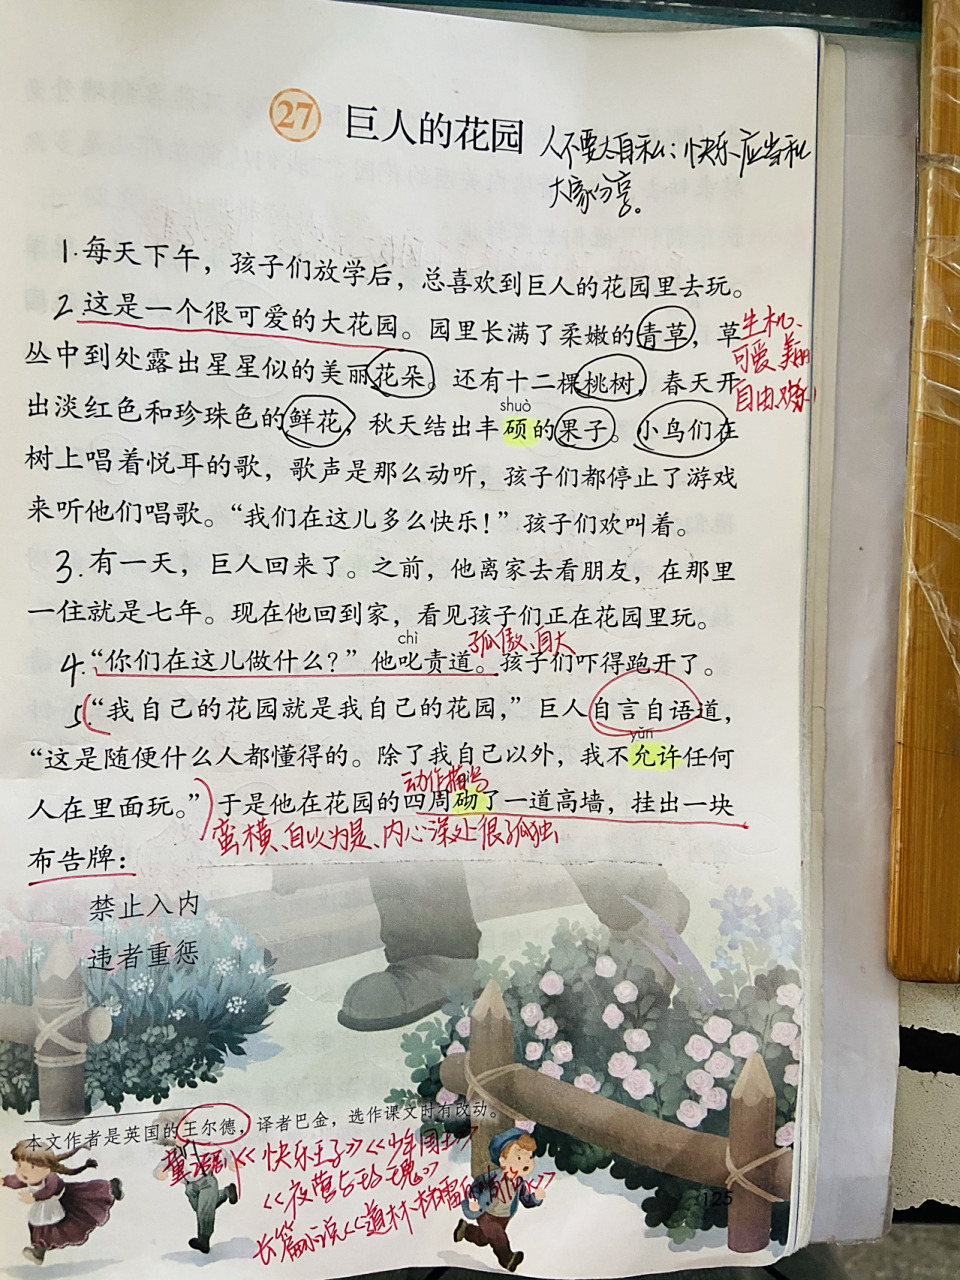 27 巨人的花园
人不要太自私：快乐应当和
大家分享。
1.每天下午，孩子们放学后，总喜欢到巨人的花园里去玩。
2.这是一个很可爱的大花园。园里长满了柔嫩的青草，草
生机、
可爱、美丽
自由、欢乐
丛中到处露出星星似的美丽花朵。还有十二棵桃树，春天开
shuò
出淡红色和珍珠色的鲜花，秋天结出丰硕的果子。小鸟们在
树上唱着悦耳的歌，歌声是那么动听，孩子们都停止了游戏
来听他们唱歌。“我们在这儿多么快乐！”孩子们欢叫着。
3.有一天，巨人回来了。之前，他离家去看朋友，在那里
一住就是七年。现在他回到家，看见孩子们正在花园里玩。
chì
孤傲、自大
4.“你们在这儿做什么？”他叱责道。孩子们吓得跑开了。
5.“我自己的花园就是我自己的花园，”巨人自言自语道，
yǔn
“这是随便什么人都懂得的。除了我自己以外，我不允许任何
动作描写
人在里面玩。”于是他在花园的四周砌了一道高墙，挂出一块
蛮横、自以为是、内心深处很孤独
布告牌：
禁止入内
违者重惩
本文作者是英国的王尔德，译者巴金，选作课文时有改动。
童话《快乐王子》《少年国王》
《夜莺与玫瑰》
长篇小说《道林·格雷的画像》
125